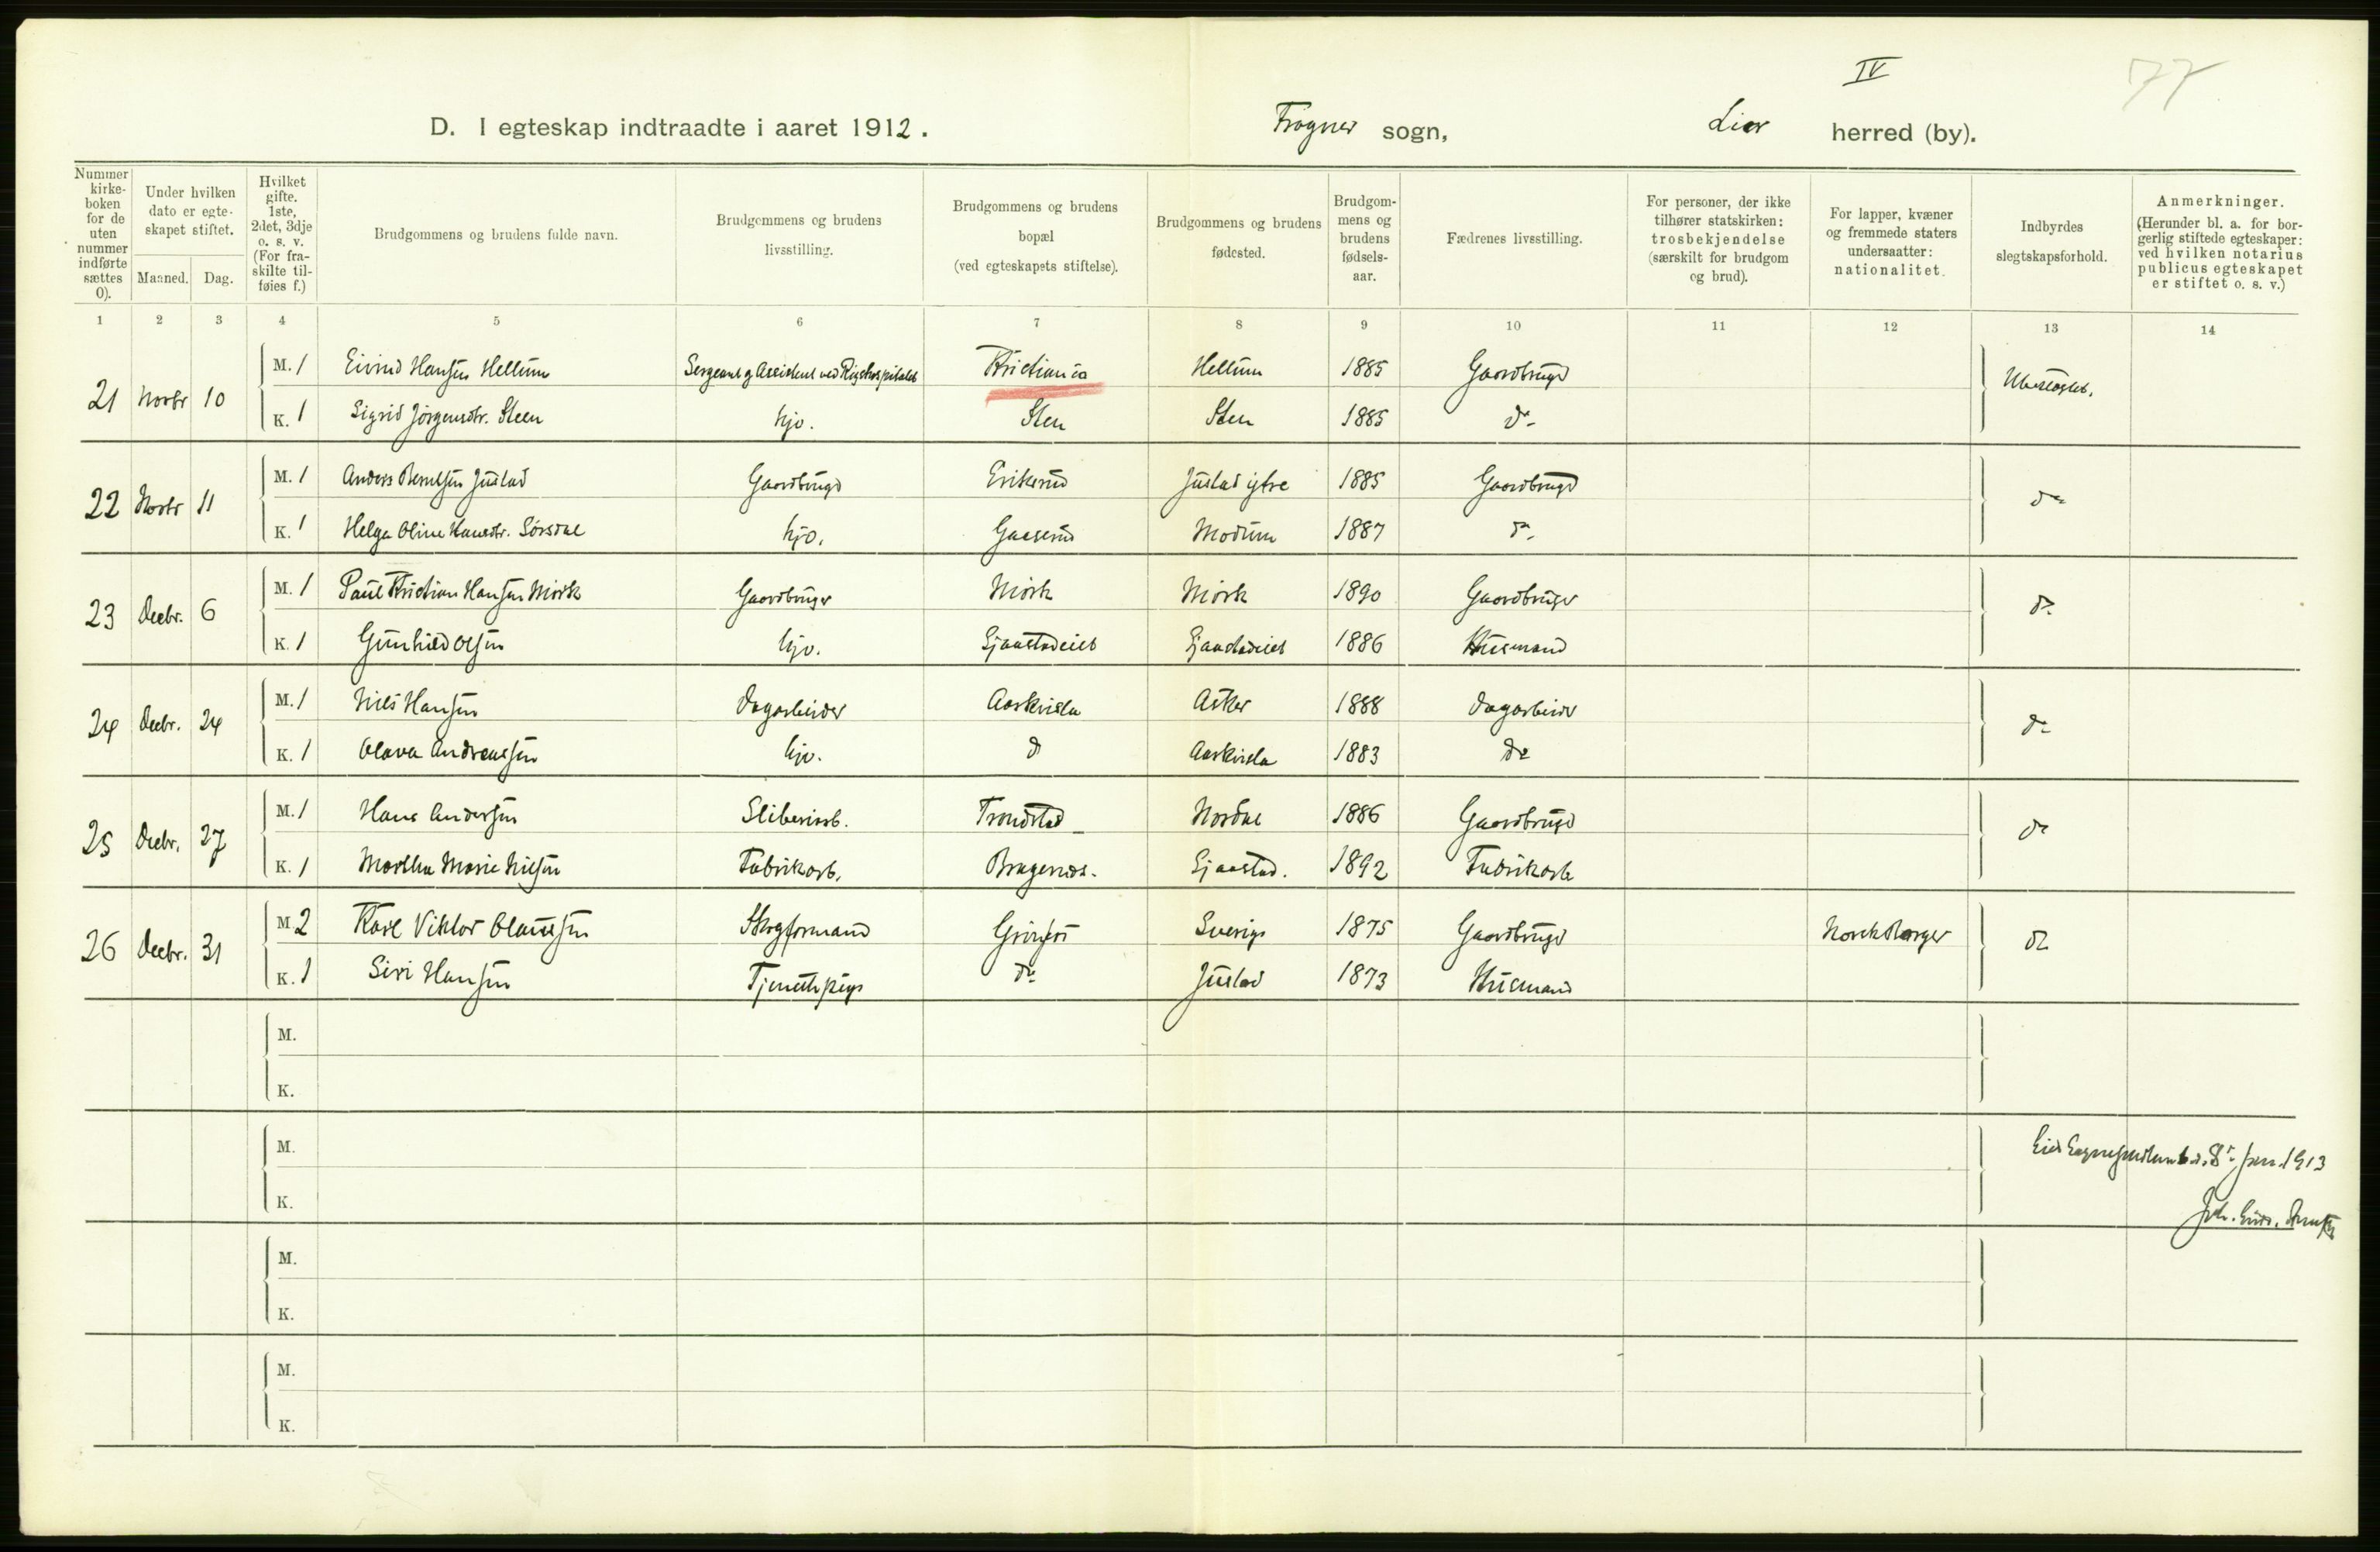 IV
77
D. I egteskap indtraadte i aaret 1912. Frogner sogn, Lier herred (by).
Nummer kirke-boken for de uten nummer indførte sættes 0). Under hvilken dato er egte-skapet stiftet. Maaned. Dag. Hvilket gifte. 1ste, 2det, 3dje o. s. v. (For fra-skilte til-føies f.) Brudgommens og brudens fulde navn. Brudgommens og brudens livsstilling. Brudgommens og brudens bopæl (ved egteskapets stiftelse). Brudgommens og brudens fødested. Brudgom-mens og brudens fødsels-aar. Fædrenes livsstilling. For personer, der ikke tilhører statskirken: trosbekjendelse (særskilt for brudgom og brud). For lapper, kvæner og fremmede staters undersaatter: nationalitet. Indbyrdes slegtskapsforhold. Anmerkninger. (Herunder bl. a. for bor-gerlig stiftede egteskaper: ved hvilken notarius publicus egteskapet er stiftet o. s. v.)
1 2 3 4 5 6 7 8 9 10 11 12 13 14
21 Novbr 10 M. 1 Eivind Hansen Hellum Sergeant og Assistent ved Rigshospitalet Kristiania Hellum 1885 Gaardbruger Ubeslægtet.
K. 1 Sigrid Jörgensdtr. Steen hjv. Sten Sten 1885 do
22 Novbr 11 M. 1 Anders Berntsen Justad Gaardbruger Eriksrud Justad ytre 1885 Gaardbruger do
K. 1 Helga Oline Hansdtr. Sørsdal hjv. Gaaserud Modum 1887 do
23 Decbr. 6 M. 1 Paul Kristian Hansen Mörk Gaardbruger Mörk Mörk 1890 Gaardbruger do
K. 1 Gunhild Olsen hjv. Sjaastadeiet Sjaastadeiet 1886 Husmand
24 Decbr. 24 M. 1 Nils Hansen Dagarbeider Aaskvisla Asker 1888 Dagarbeider do
K. 1 Olava Andreassen hjv. do Aaskvisla 1883 do
25 Decbr. 27 M. 1 Hans Andersen Sliberiarb. Trondstad Nordal 1886 Gaardbruger do
K. 1 Martha Marie Nilsen Fabrikarb. Bragernes. Sjaastad. 1892 Fabrikarb
26 Decbr. 31 M. 2 Karl Viktor Olaussen Skogformand Sverige 1875 Gaardbruger Norsk Borger do
K. 1 Siri Hansen Tjenestepige do Justad 1873 Husmand
M.
K.
M. 8de Jan. 1913
K. Joh.
M.
K.
M.
K.